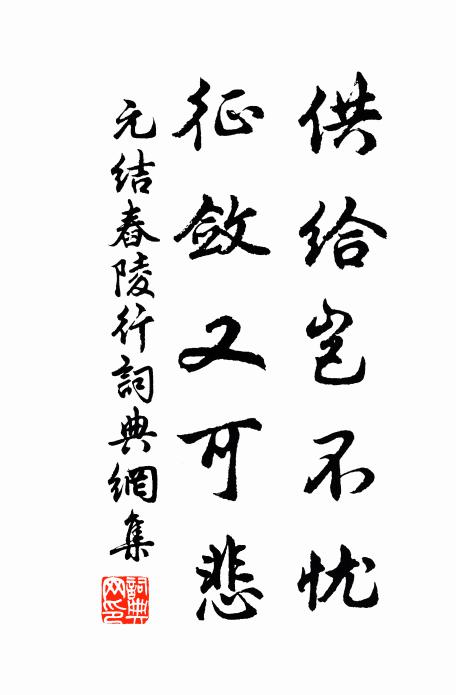 供给岂不忧
征敛又可悲
元结舂陵行詞典網集
詞典網印